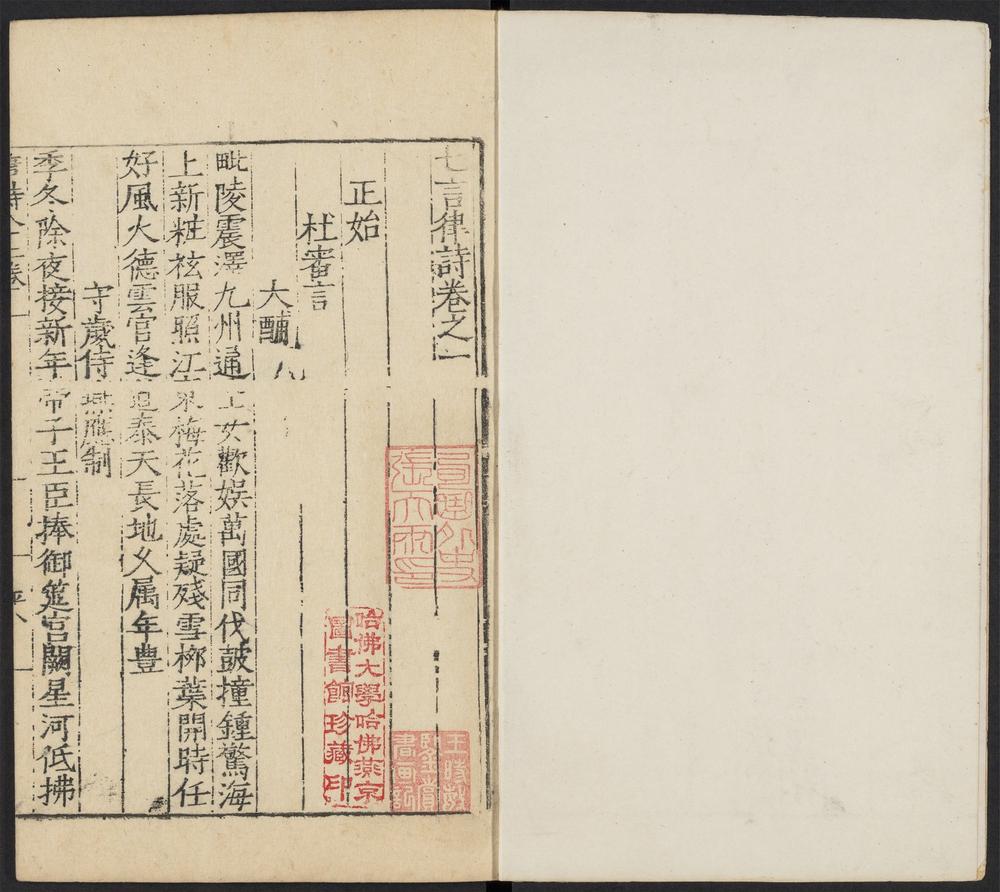 七言律詩卷之一
正始
杜審言
大酺
毗陵震澤九州通士女歡娛萬國同伐鼓撞鍾驚海
上新粧袨服照江東梅花落處疑殘雪柳葉開時任
好風火德雲官逢道泰天長地久属年豊
守歲侍宴應制
季冬除夜接新年帝子王臣捧御筵宮闕星河低拂
哈佛大學哈佛燕京
圖書館珍藏印